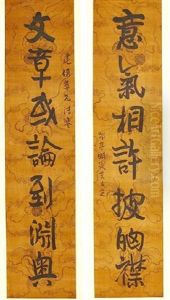 意氣相許披胸襟
文章或論到淵奧